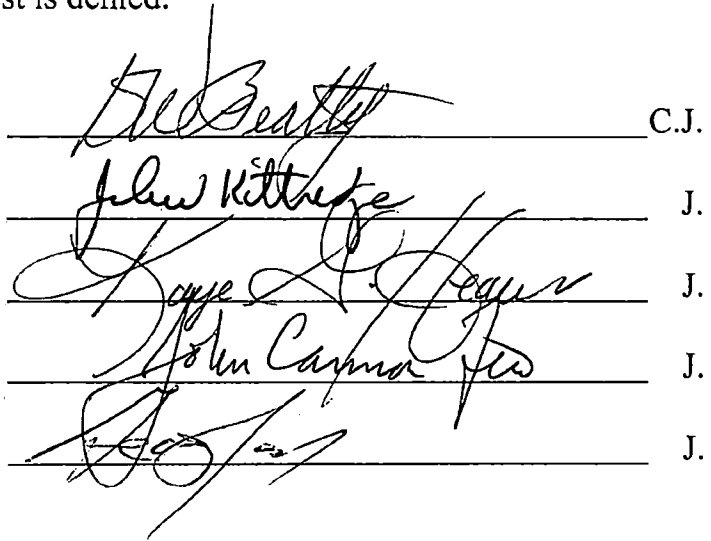 st is denied.
Beatty C.J.
John Kittredge J.
Kaye G. Hearn J.
John Cannon Few J.
J.